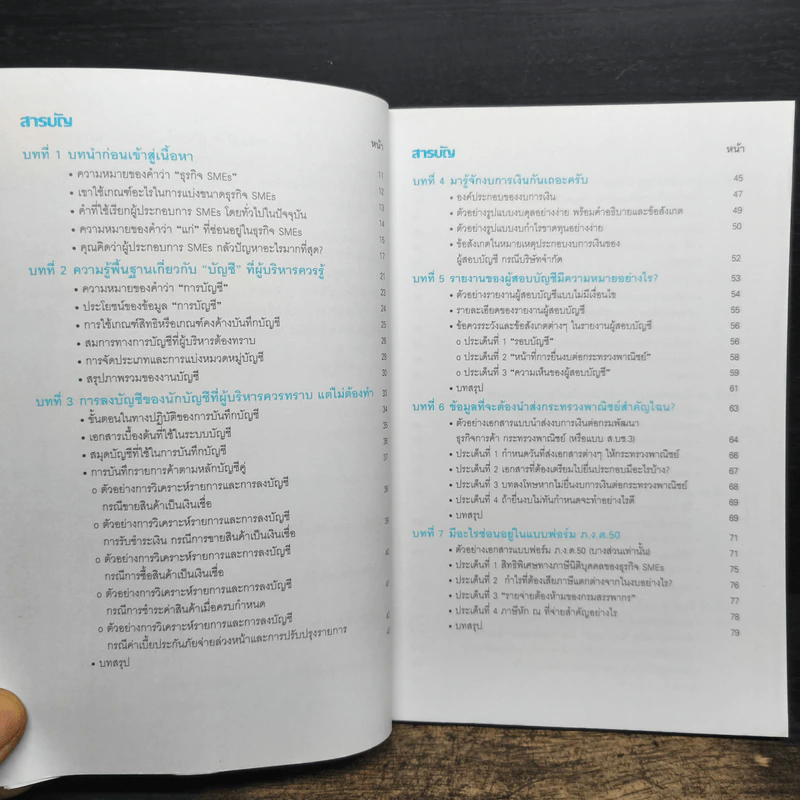 สารบัญ
หน้า
บทที่ 1 บทนำก่อนเข้าสู่เนื้อหา
• ความหมายของคำว่า "ธุรกิจ SMEs" 11
• เขาใช้เกณฑ์อะไรในการแบ่งขนาดธุรกิจ SMEs 12
• คำที่ใช้เรียกผู้ประกอบการ SMEs โดยทั่วไปในปัจจุบัน 13
• ความหมายของคำว่า "แก่" ที่ซ่อนอยู่ในธุรกิจ SMEs 14
• คุณคิดว่าผู้ประกอบการ SMEs กลัวปัญหาอะไรมากที่สุด? 16
17
บทที่ 2 ความรู้พื้นฐานเกี่ยวกับ "บัญชี" ที่ผู้บริหารควรรู้ 21
• ความหมายของคำว่า "การบัญชี" 22
• ประโยชน์ของข้อมูล "การบัญชี"
• การใช้เกณฑ์สิทธิหรือเกณฑ์คงค้างบันทึกบัญชี
• สมการทางการบัญชีที่ผู้บริหารต้องทราบ
• การจัดประเภทและการแบ่งหมวดหมู่บัญชี
• สรุปภาพรวมของงานบัญชี
บทที่ 3 การลงบัญชีของนักบัญชีที่ผู้บริหารควรทราบ แต่ไม่ต้องทำ
• ขั้นตอนในทางปฏิบัติของการบันทึกบัญชี
• เอกสารเบื้องต้นที่ใช้ในระบบบัญชี
• สมุดบัญชีที่ใช้ในการบันทึกบัญชี
• การบันทึกรายการค้าตามหลักบัญชีคู่
o ตัวอย่างการวิเคราะห์รายการและการลงบัญชี
กรณีขายสินค้าเป็นเงินเชื่อ
o ตัวอย่างการวิเคราะห์รายการและการลงบัญชี
การรับชำระเงิน กรณีการขายสินค้าเป็นเงินเชื่อ
o ตัวอย่างการวิเคราะห์รายการและการลงบัญชี
กรณีการซื้อสินค้าเป็นเงินเชื่อ
o ตัวอย่างการวิเคราะห์รายการและการลงบัญชี
กรณีการชำระค่าสินค้าเมื่อครบกำหนด
o ตัวอย่างการวิเคราะห์รายการและการลงบัญชี
กรณีค่าเบี้ยประกันภัยจ่ายล่วงหน้าและการปรับปรุงรายการ
• บทสรุป
สารบัญ
หน้า
บทที่ 4 มารู้จักงบการเงินกันเถอะครับ 45
• องค์ประกอบของงบการเงิน 47
• ตัวอย่างรูปแบบงบดุลอย่างง่าย พร้อมคำอธิบายและข้อสังเกต 49
• ตัวอย่างรูปแบบงบกำไรขาดทุนอย่างง่าย 50
• ข้อสังเกตในหมายเหตุประกอบงบการเงินของ
ผู้สอบบัญชี กรณีบริษัทจำกัด 52
บทที่ 5 รายงานของผู้สอบบัญชีมีความหมายอย่างไร? 53
• ตัวอย่างรายงานผู้สอบบัญชีแบบไม่มีเงื่อนไข 54
• รายละเอียดของรายงานผู้สอบบัญชี 55
• ข้อควรระวังและข้อสังเกตต่างๆ ในรายงานผู้สอบบัญชี 56
o ประเด็นที่ 1 "รอบบัญชี" 56
o ประเด็นที่ 2 "หน้าที่การยื่นงบต่อกระทรวงพาณิชย์" 58
o ประเด็นที่ 3 "ความเห็นของผู้สอบบัญชี" 59
• บทสรุป 61
บทที่ 6 ข้อมูลที่จะต้องนำส่งกระทรวงพาณิชย์สำคัญไฉน? 63
• ตัวอย่างเอกสารแบบนำส่งงบการเงินต่อกรมพัฒนา
ธุรกิจการค้า กระทรวงพาณิชย์ (หรือแบบ ส.บช.3) 64
• ประเด็นที่ 1 กำหนดวันที่ส่งเอกสารต่างๆ ให้กระทรวงพาณิชย์ 66
• ประเด็นที่ 2 เอกสารที่ต้องเตรียมไปยื่นประกอบมีอะไรบ้าง? 67
• ประเด็นที่ 3 บทลงโทษหากไม่ยื่นงบการเงินต่อกระทรวงพาณิชย์ 68
• ประเด็นที่ 4 ถ้ายื่นงบไม่ทันกำหนดจะทำอย่างไรดี 69
• บทสรุป 69
บทที่ 7 มีอะไรซ่อนอยู่ในแบบฟอร์ม ภ.ง.ด.50 71
• ตัวอย่างเอกสารแบบฟอร์ม ภ.ง.ด.50 (บางส่วนเท่านั้น) 71
• ประเด็นที่ 1 สิทธิพิเศษทางภาษีนิติบุคคลของธุรกิจ SMEs 75
• ประเด็นที่ 2 กำไรที่ต้องเสียภาษีแตกต่างจากในงบอย่างไร? 76
• ประเด็นที่ 3 "รายจ่ายต้องห้ามของกรมสรรพากร" 77
• ประเด็นที่ 4 ภาษีหัก ณ ที่จ่ายสำคัญอย่างไร 78
• บทสรุป 79